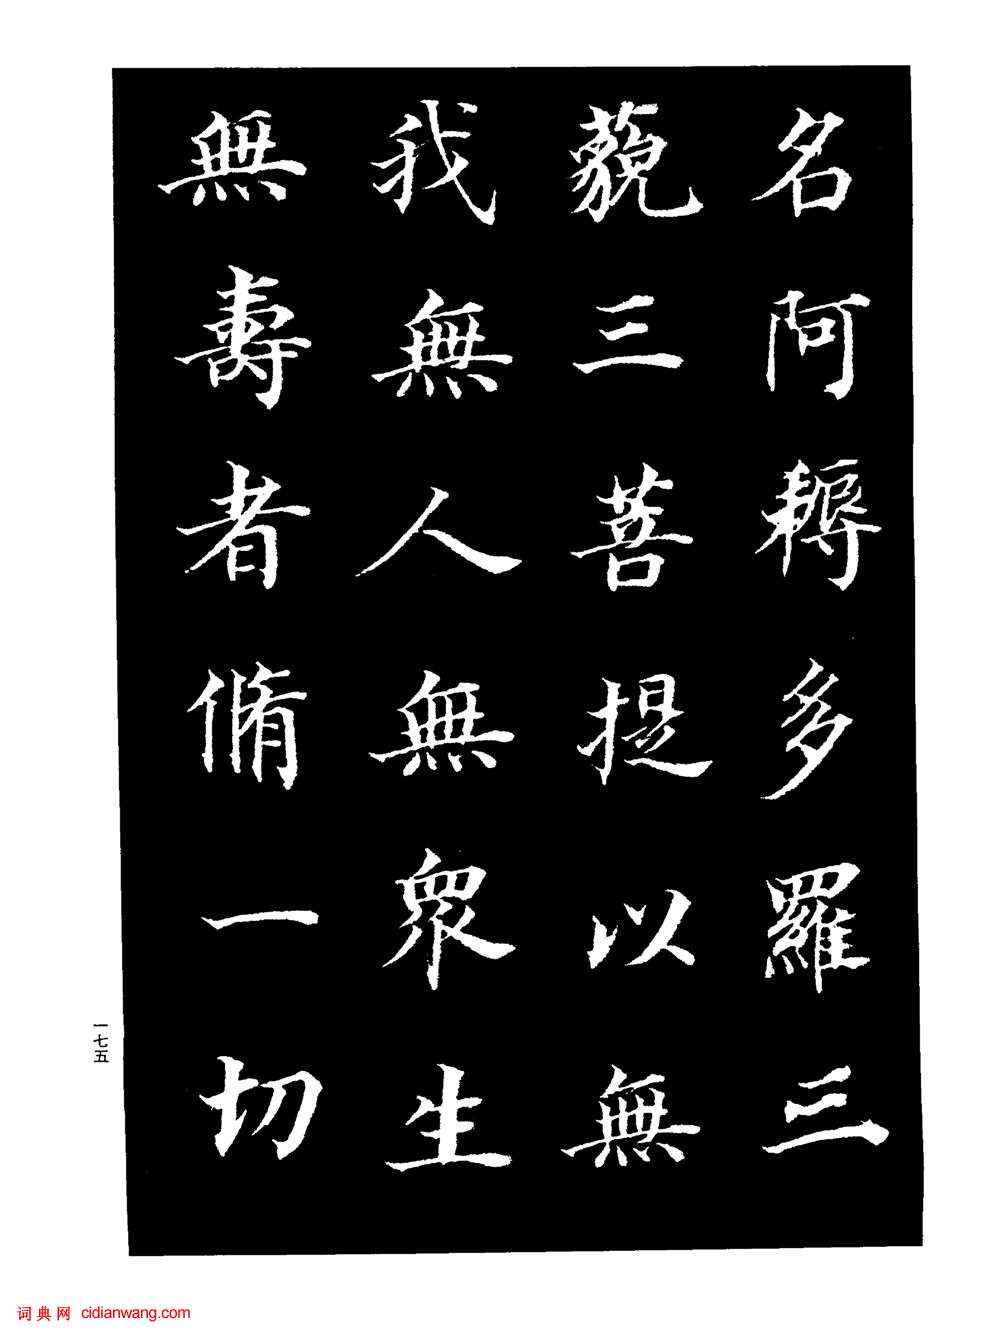 名阿耨多羅三
藐三菩提以無
我無人無衆生
無壽者脩一切
一七五
词典网 cidianwang.com